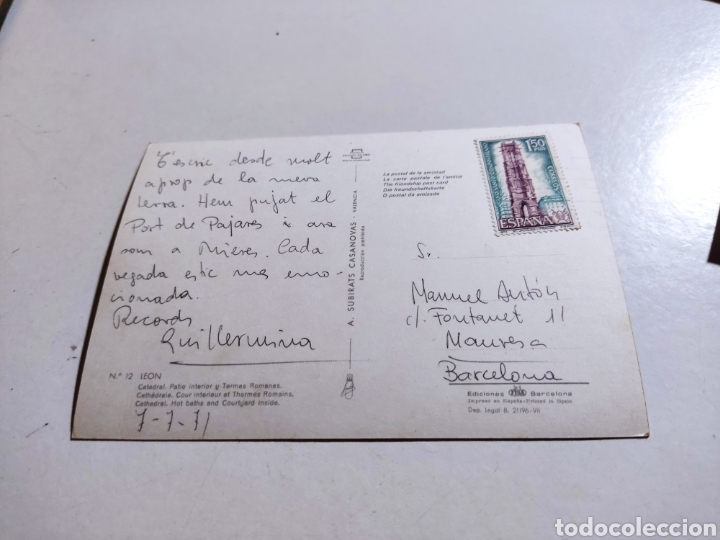 T'escric desde molt
aprop de la meva
terra. Hem pujat el
Port de Pajares i ara
som a Mieres. Cada
vegada estic mes emo-
cionada.
Records
Guillermina
Nº 12 LEON
Catedral. Patio interior y Termas Romanas.
Cathédrale. Cour interieur et Thermes Romains.
Cathedral. Hot baths and Courtyard inside.
7-7-71
A. SUBIRATS CASANOVAS - VALENCIA
Reproducción prohibida
La postal de la amistad
La carte postale de l'amitié
The friendship post card
Die freundschaftskarte
O postal da amizade
1'50
PTAS
ESPAÑA
Sr.
Manuel Antón
c/. Fontanet 11
Manresa
Barcelona
Ediciones Barcelona
Impreso en España-Printed in Spain
Dep. Legal B. 21196-VII
todocoleccion